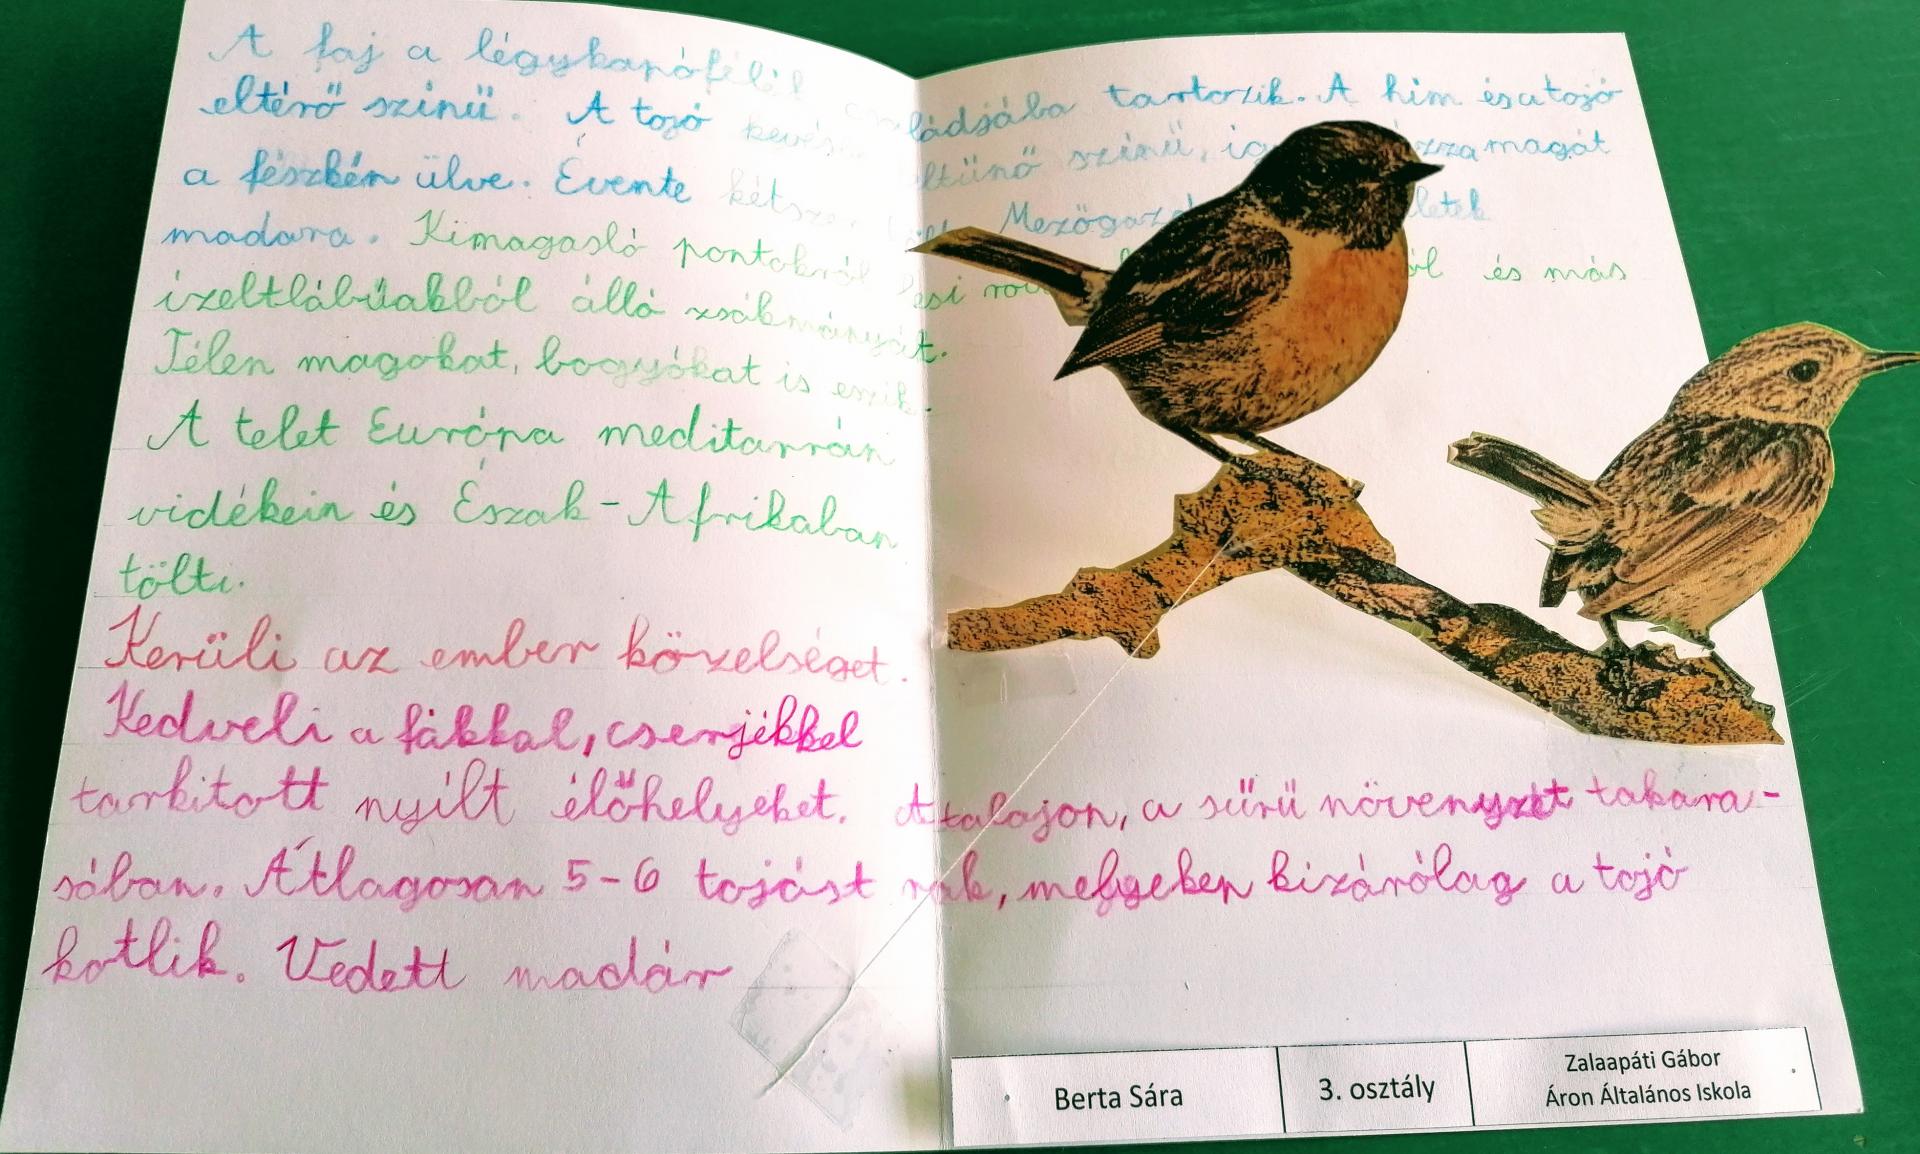 A faj a légykapófélék családjába tartozik. A hím és a tojó
eltérő színű. A tojó kevésbé feltűnő színű, így magát
a fészkén ülve. Évente kétszer költ. Mezőgazd letek
madara. Kimagasló pontokról lesi rov ól és más
ízeltlábúakból álló zsákmányát.
Télen magokat, bogyókat is eszik.
A telet Európa meditarrán
vidékein és Észak-Afrikában
tölti.
Kerüli az ember közelséget.
Kedveli a fákkal, cserjékkel
tarkitott nyílt élőhelyeket. A talajon, a sűrű növenyzet takara-
sában. Átlagosan 5-6 tojást rak, melyeken kizárólag a tojó
kotlik. Vedett madár
Berta Sára
3. osztály
Zalaapáti Gábor
Áron Általános Iskola